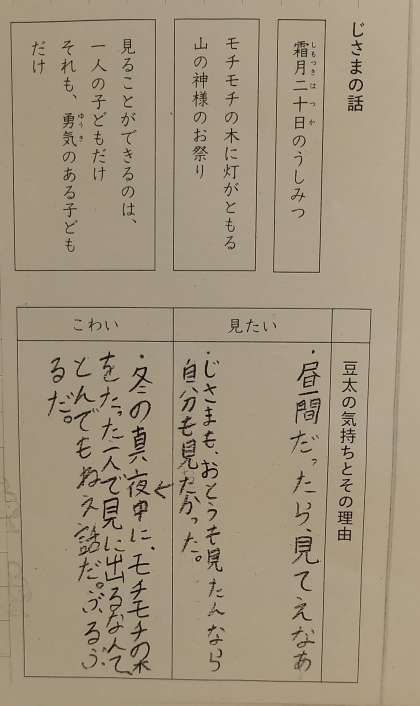 じさまの話
霜月二十日のうしみつ
しもつきはつか
モチモチの木に灯がともる
山の神様のお祭り
見ることができるのは、
一人の子どもだけ
それも、勇気のある子ども
ゆうき
だけ
豆太の気持ちとその理由
見たい
・昼間だったら、見てえなあ
・じさまも、おとうも見たんなら
自分も見たかった。
こわい
・冬の真夜中に、モチモチの木
をたった一人で見に出るなんて、
とんでもねえ話だ。ぶるぶ
るだ。